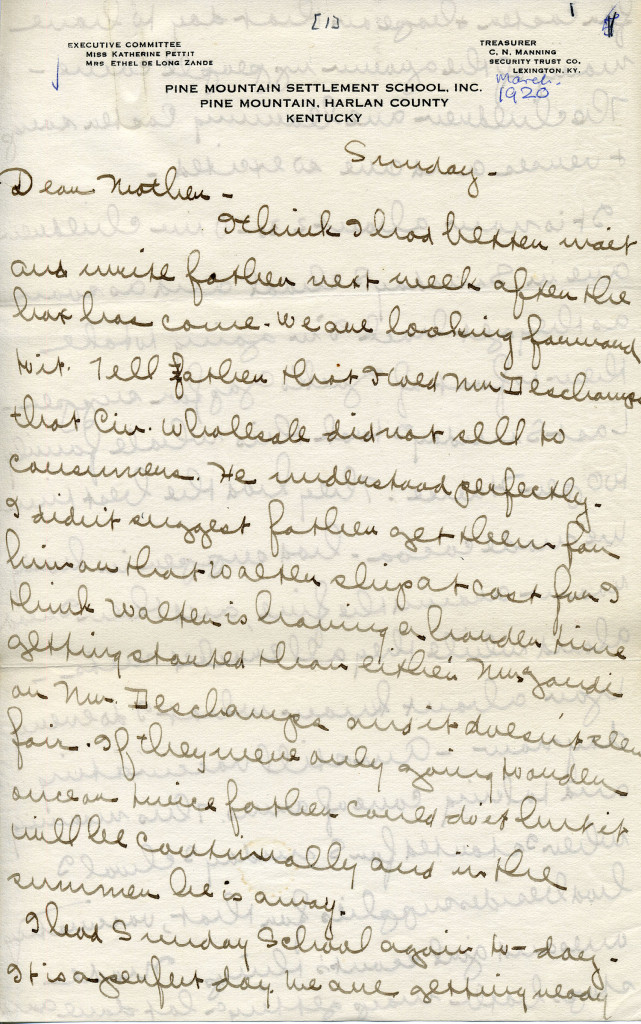 [1]
1
EXECUTIVE COMMITTEE
MISS KATHERINE PETTIT
MRS ETHEL DE LONG ZANDE
TREASURER
C. N. MANNING
SECURITY TRUST CO.
LEXINGTON, KY.
March.
1920
PINE MOUNTAIN SETTLEMENT SCHOOL, INC.
PINE MOUNTAIN, HARLAN COUNTY
KENTUCKY
Sunday-
Dear Mother-
I think I had better wait
and write father next week after the
box has come. We are looking forward
to it. Tell father that I told Mr. Deschamps
that Cin. Wholesale did not sell to
consumers. He understood perfectly.
I didn't suggest father get them for
him or that Walter ship at cost for I
think Walter is having a harder time
getting started than either Mr. Zande
or Mr. Deschamps and it doesn't seem
fair. If they were only going to order
once or twice father could do it but it
will be continually and in the
summer he is away.
I lead Sunday School again to-day.
It is a perfect day. We are getting ready